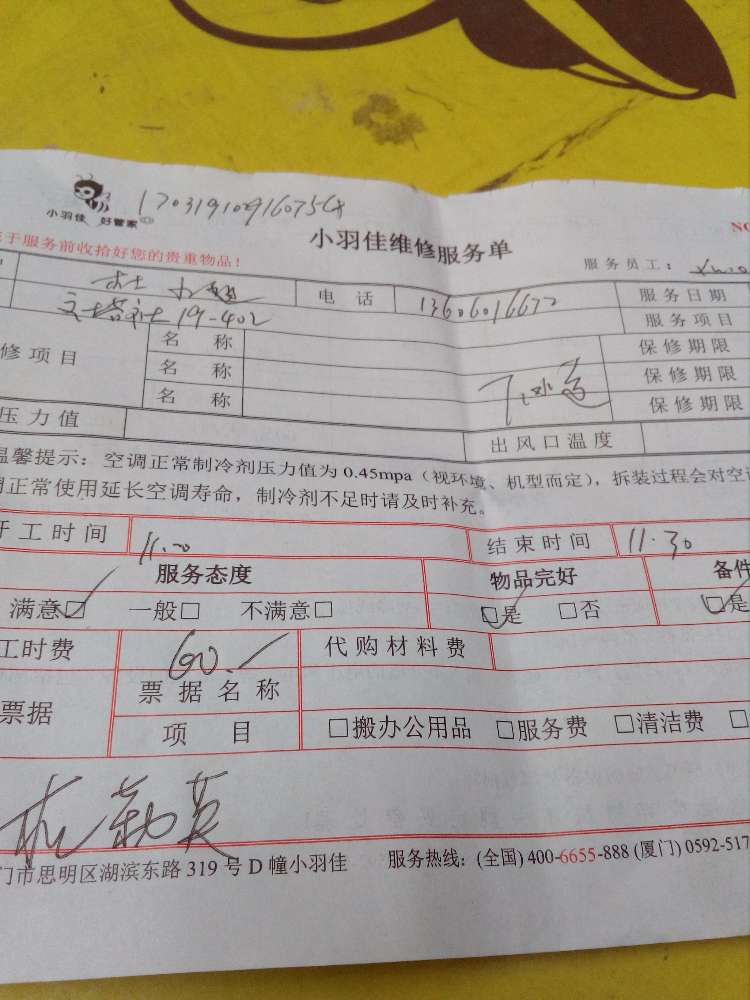 170319109160756x
小羽佳 好管家
小羽佳维修服务单
NO
于服务前收拾好您的贵重物品!
服务员工:
杜小姐 电话 13606016672 服务日期
文塔社19-402 服务项目
修项目 名称 保修期限
名称 保修期限
名称 保修期限
压力值 出风口温度
温馨提示:空调正常制冷剂压力值为 0.45mpa(视环境、机型而定),拆装过程会对空
正常使用延长空调寿命,制冷剂不足时请及时补充。
开工时间 11.00 结束时间 11.30
服务态度 物品完好 备件
满意☑ 一般□ 不满意□ ☑是 □否 ☑是
工时费 60.- 代购材料费
票据 票据名称
项目 □搬办公用品 □服务费 □清洁费 □
门市思明区湖滨东路 319 号 D 幢小羽佳 服务热线:(全国) 400-6655-888 (厦门) 0592-517